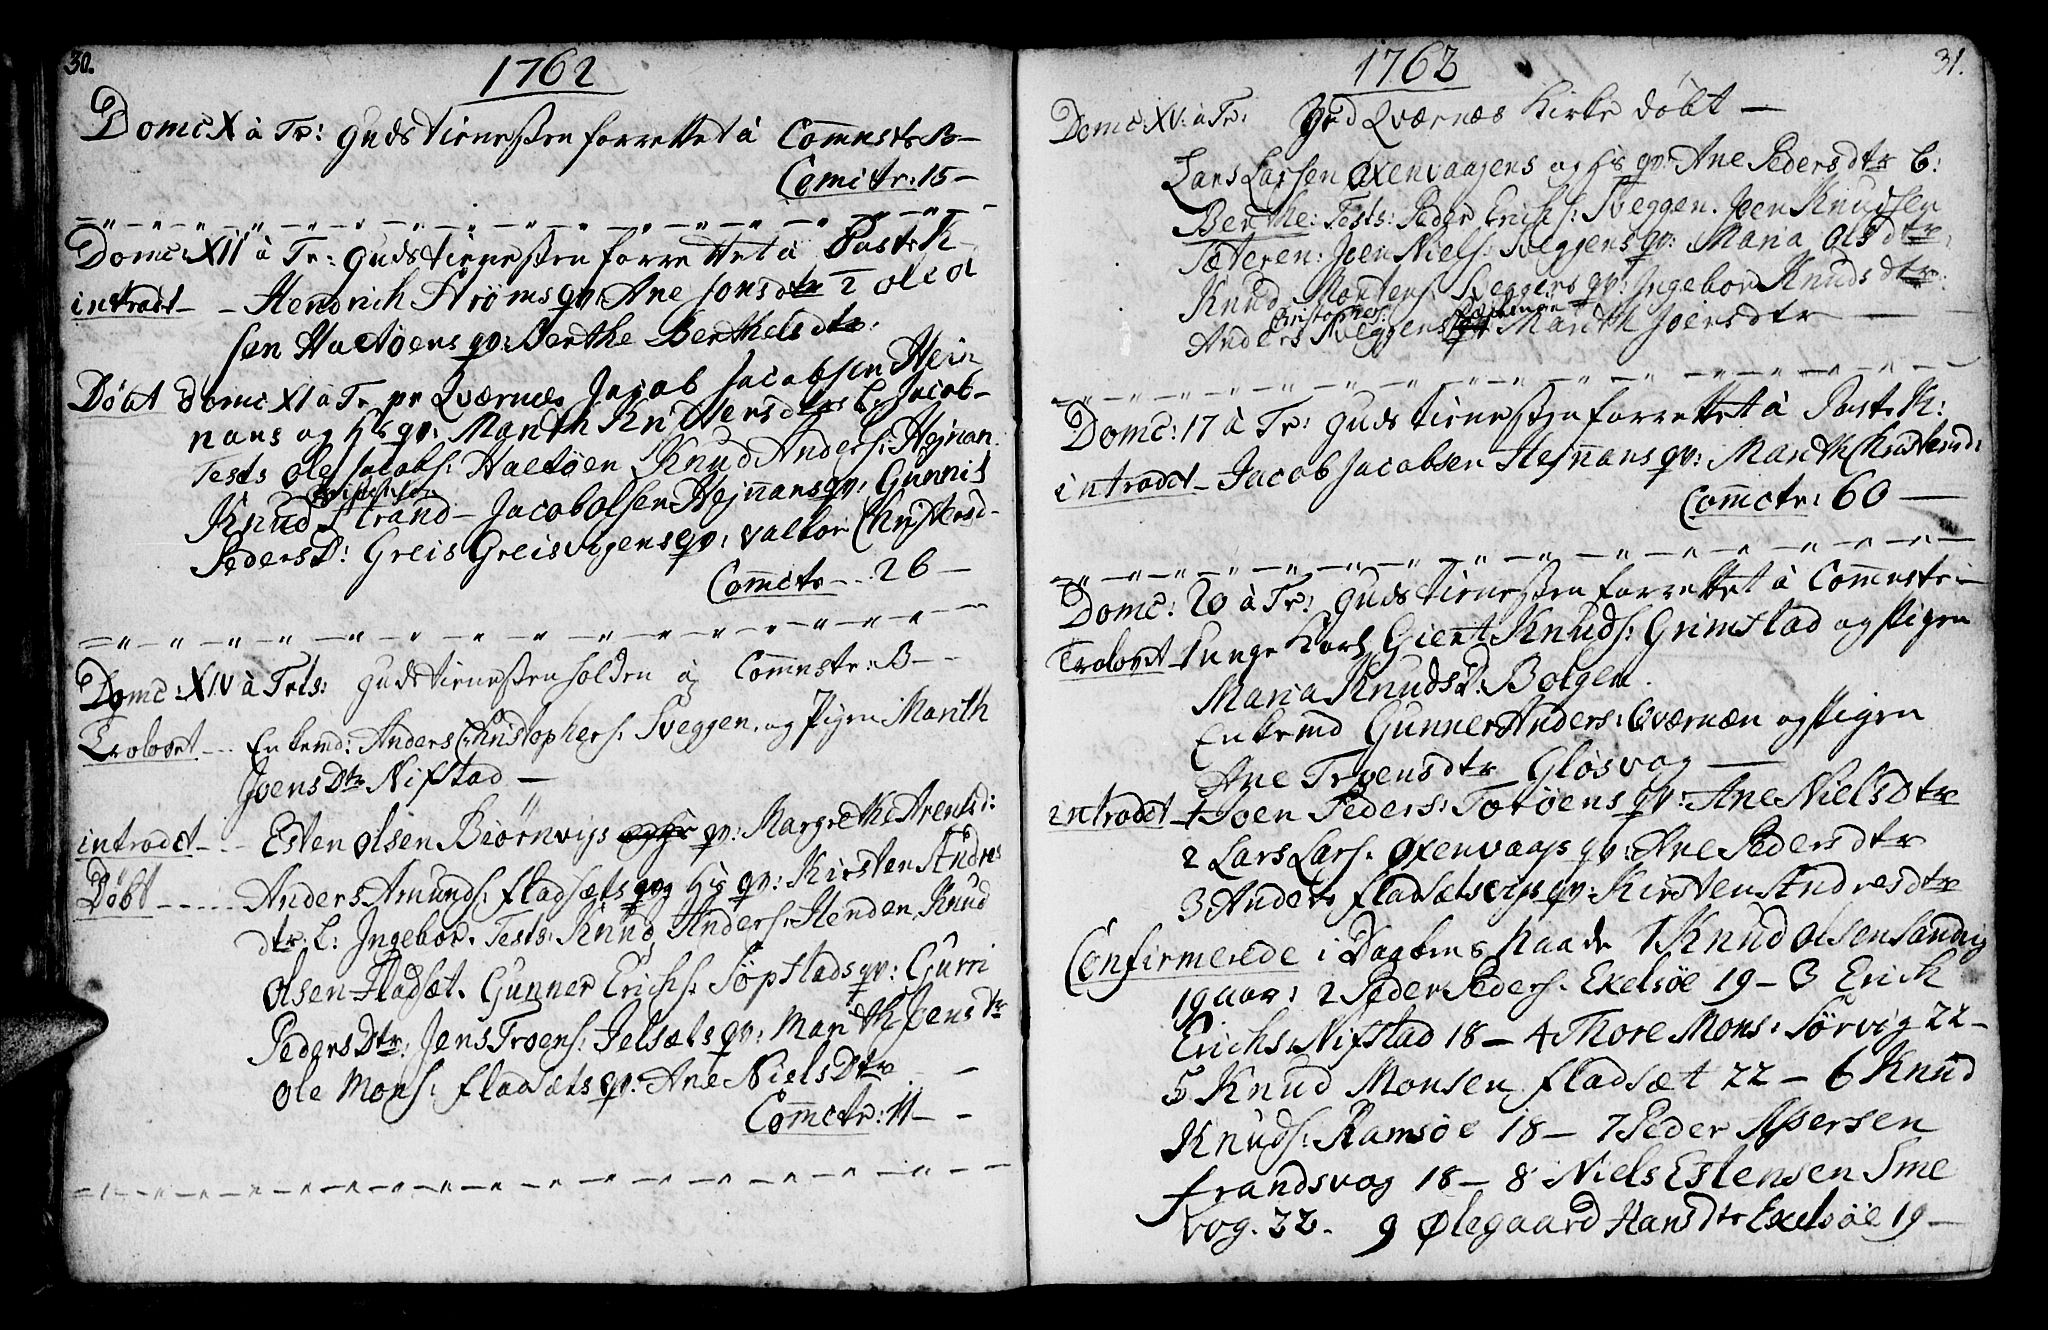 30.
1762
Domc X à Tr: Gudstienesten forrettet à Comnstr B–
Comctr: 15 –
Domc: XII à Tr: Gudstienesten forrettet à Past: K
introdct – – Hendrich Strøms qv: Ane Jonsdtr 2 Ole Ol
sen Haetøens qv: Berthe Berthelsdtr:
Døbt domc XI à Tr pr Qværnæs Jacob Jacobsen Hein
nans og Hs qv: Marith Kristensdtrs b: Jacob –
Tests Ole Jacobs: Haetøen Knud Anders: Hejnan
Christensen
Knud Strand – Jacob Olsen Hejnans qv: Gunnild
Peders D: Greis Greisvogens qv: Valbor Christensd –
Comctr – – 26 –
Domc: XIV à Trts: gudstienesten holden à Comnstr: B – –
Trolovet – – Enkemd: Anders Christophers: Sveggen, og Pigen Marith
Joens Dtr Nifstad –
introdct – – Esten Olsen Biørnvigs qv: Margrethe Arentsd:
Døbt – – – – Anders Amunds: Fladsæts og Hs qv: Kirsten Andres
dtr: b: Ingebor. Tests: Knud Anders: Henden, Knud
Olsen Fladsæt. Gunner Erichs: Søpstads qv: Gurri
Peders Dtr: Jens Troens: Jelsæts qv: Marith Joens Dtr
Ole Mons: Fladsæts qv: Ane Niels Dtr – –
Comctr: 11 – –
31.
1763
Domc: XV: à Tr: Ved Qværnæs Kirke døbt –
Lars Larsen Oxenvaagens og Hs qv: Ane Pedersdtr b:
Berthe: Tests: Peder Erichs: Sveggen. Joen Knudsen
Sæteren: Joen Niels: Sveggens qv: Maria Olsdtr,
Knud Mortens: Sveggens qv: Ingebor Knudsdtr:
Christophers:
Anders Sveggens Marith Joensdtr –
Domc: 17 à Tr: Gudstienesten forrettet à Past: K:
introdct – Jacob Jacobsen Hejnans qv: Marith Christensd:
Comctr: 60 –
Domc: 20 à Tr: Gudstienesten forrettet à Comnstr: –
Trolovet – Unge Karl Giert Knuds: Grimstad og Pigen
Maria Knuds D: Bolgen.
Enkemd Gunner Anders: Qværnæn og Pigen
Ane Troensdtr Gløsvog –
introdct – 1 Joen Peders: Torøens qv: Ane Nielsdtr
2 Lars Lars: Oxenvaags qv: Ane Pedersdtr
3 Anders Fladsætsvigs qv: Kirsten Andresdtr
Confirmerede i Daabens Naade 1 Knud Olsen Sandvig
19 aar: 2 Peder Peders: Exelsøe 19 – 3 Erick
Erichs: Nifstad 18 – 4 Thore Mons: Sørvig 22 –
5 Knud Monsen Fladsæt 22 – 6 Knud
Knuds: Ramsøe 18 – 7 Peder Spersen
Frandsvog 18 – 8 Niels Estensen Sme
vog. 22. 9 Ølegaard Hansdtr Exelsøe 19 –